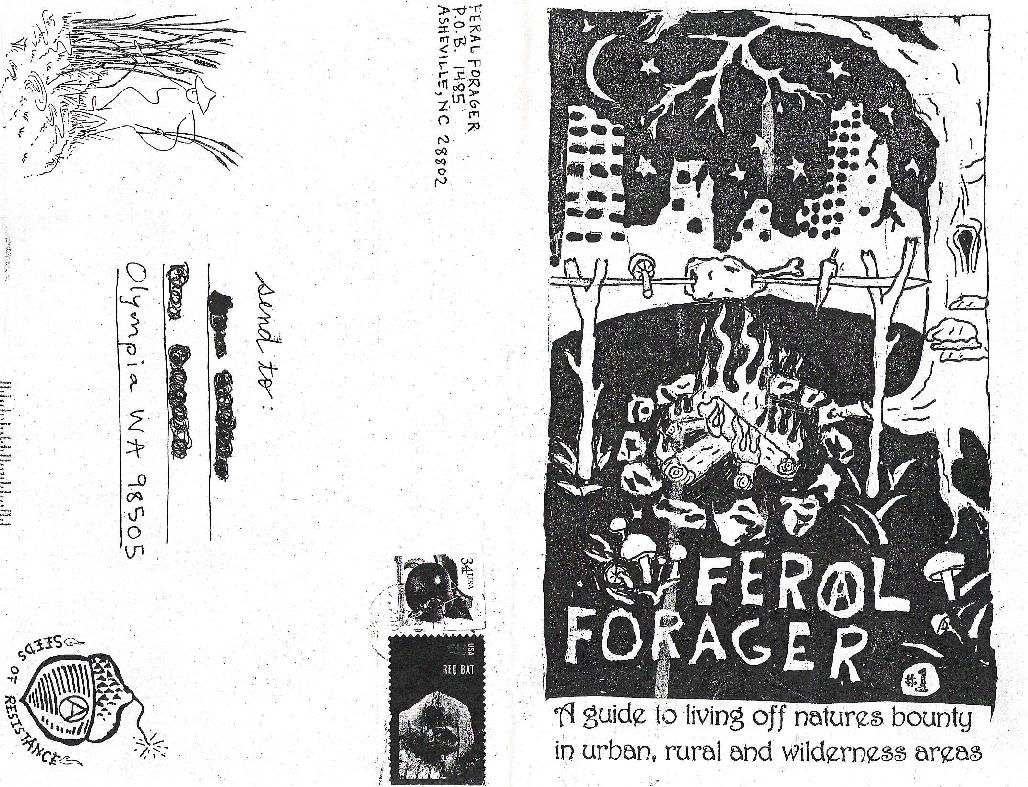 FERAL FORAGER
P.O.B. 1485
ASHEVILLE, NC 28802
send to:
Olympia WA 98505
34 USA
USA
RED BAT
SEEDS OF RESISTANCE
FERAL
FORAGER
#1
A guide to living off natures bounty
in urban, rural and wilderness areas